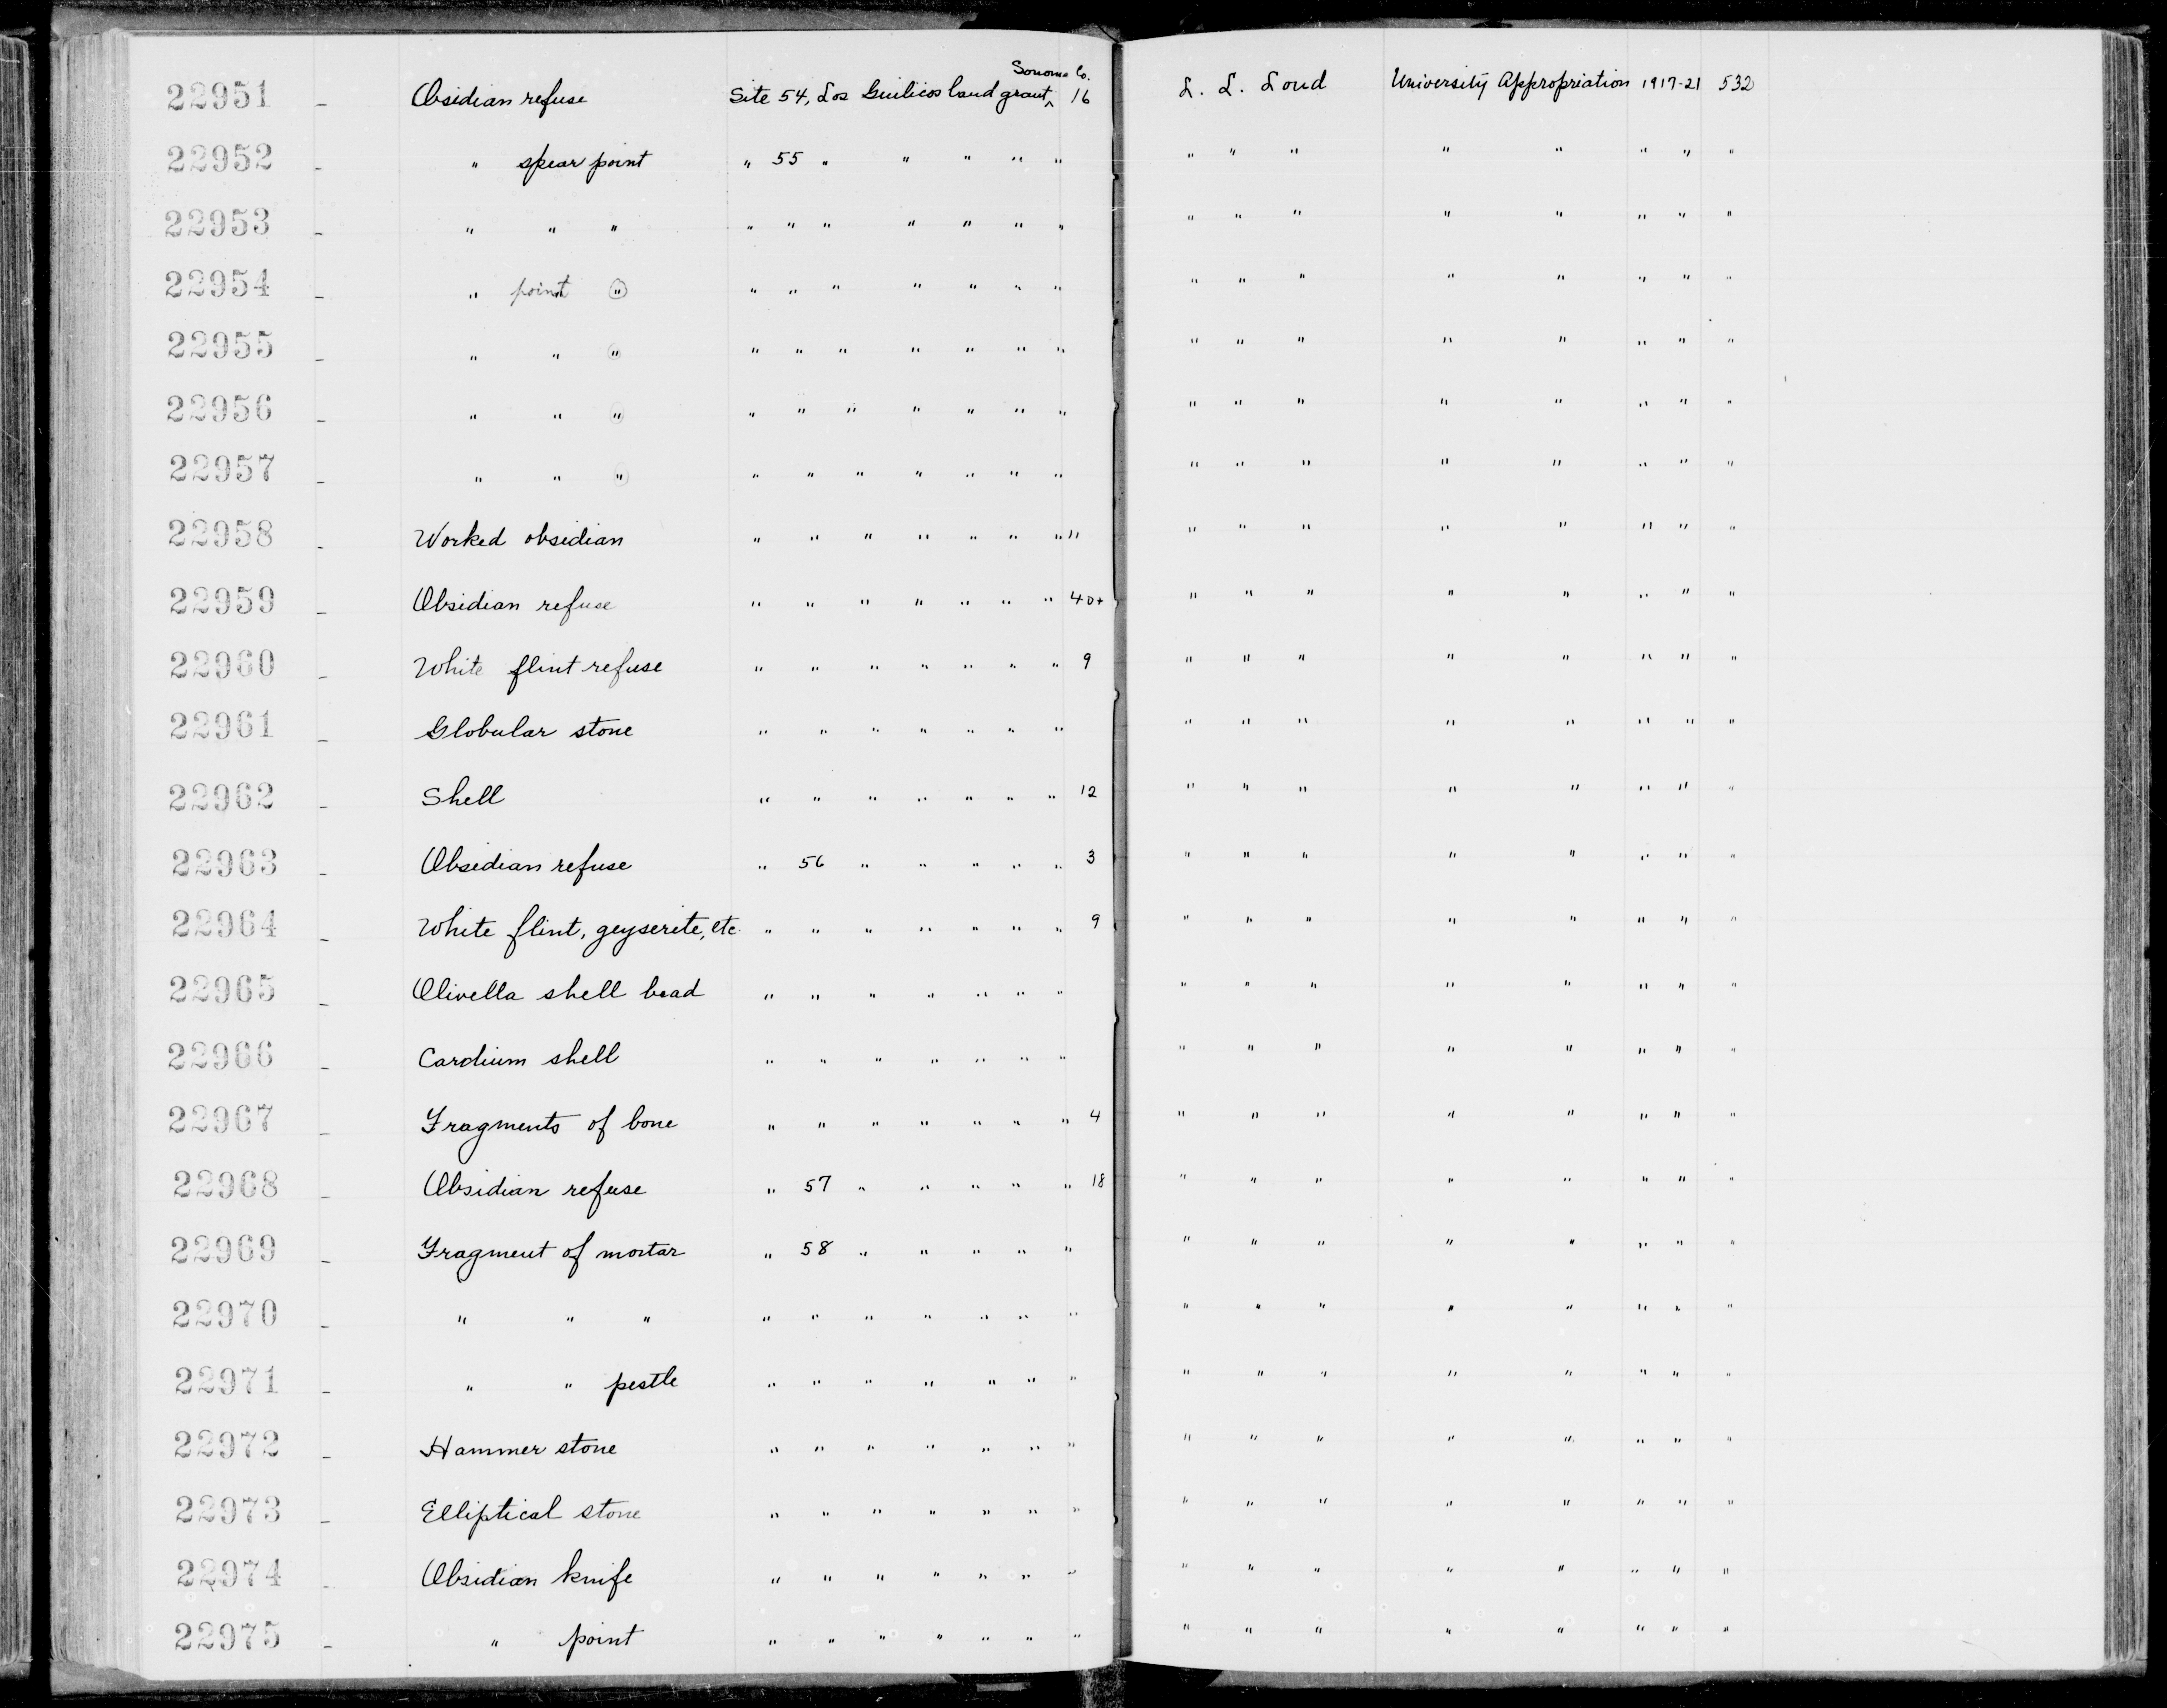 22951 - Obsidian refuse Site 54, Los Guilicos land grant, ^ Sonoma Co. 16 L. L. Loud University Appropriation 1917-21 532
22952 - " spear point " 55 " " " " " " " " " " " " "
22953 - " " " " " " " " " " " " " " " " " "
22954 - " point " " " " " " " " " " " " " " " "
22955 - " " " " " " " " " " " " " " " " " "
22956 - " " " " " " " " " " " " " " " " " "
22957 - " " " " " " " " " " " " " " " " " "
22958 - Worked obsidian " " " " " " " 11 " " " " " " " "
22959 - Obsidian refuse " " " " " " " 40+ " " " " " " " "
22960 - White flint refuse " " " " " " " 9 " " " " " " " "
22961 - Globular stone " " " " " " " " " " " " " " "
22962 - Shell " " " " " " " 12 " " " " " " " "
22963 - Obsidian refuse " 56 " " " " " 3 " " " " " " " "
22964 - White flint, geyserite, etc " " " " " " " 9 " " " " " " " "
22965 - Olivella shell bead " " " " " " " " " " " " " " "
22966 - Cardium shell " " " " " " " " " " " " " " "
22967 - Fragments of bone " " " " " " " 4 " " " " " " " "
22968 - Obsidian refuse " 57 " " " " " 18 " " " " " " " "
22969 - Fragment of mortar " 58 " " " " " " " " " " " " "
22970 - " " " " " " " " " " " " " " " " " "
22971 - " " pestle " " " " " " " " " " " " " " "
22972 - Hammer stone " " " " " " " " " " " " " " "
22973 - Elliptical stone " " " " " " " " " " " " " " "
22974 - Obsidian knife " " " " " " " " " " " " " " "
22975 - " point " " " " " " " " " " " " " " "